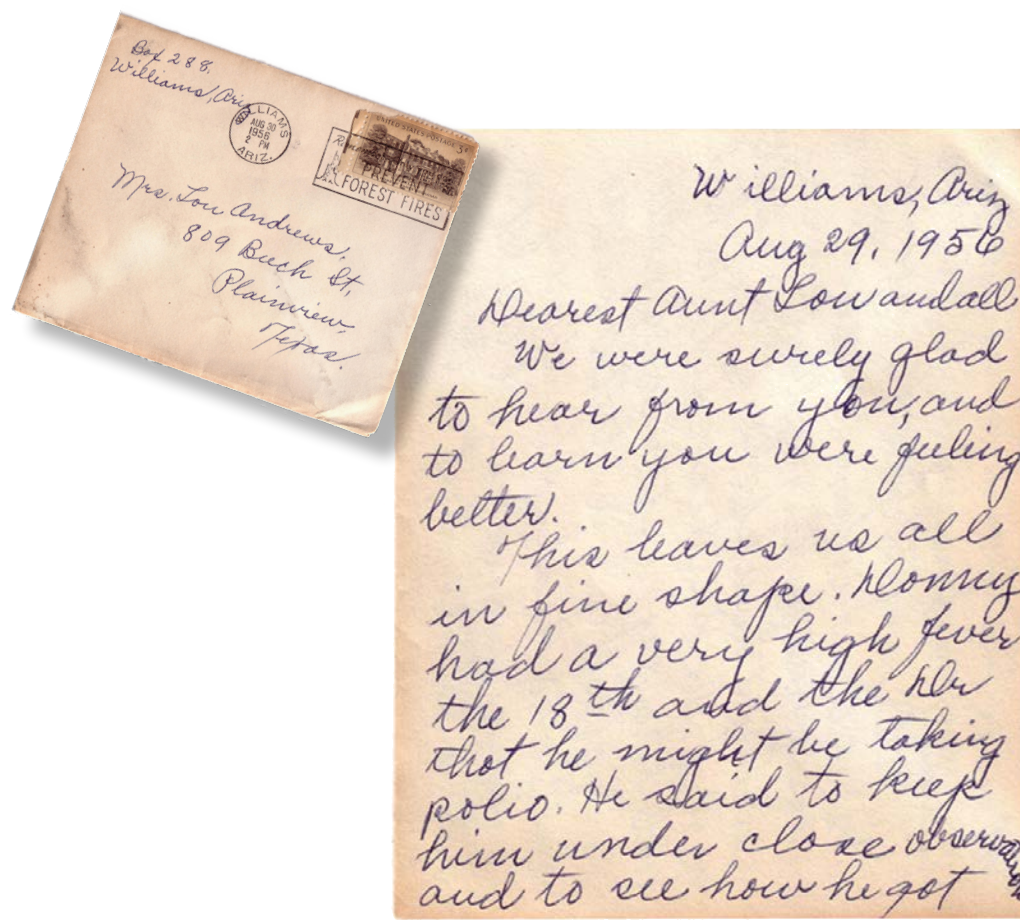 Box 288.
Williams, Ariz
WILLIAMS
AUG 30
1956
2 PM
ARIZ.
UNITED STATES POSTAGE 3¢
PREVENT
FOREST FIRES
Mrs. Lou Andrews,
809 Buch St,
Plainview,
Texas.
Williams, Ariz
Aug 29, 1956
Dearest Aunt Lou and all
We were surely glad
to hear from you, and
to learn you were feeling
better.
This leaves us all
in fine shape. Donny
had a very high fever
the 18th and the Dr
that he might be taking
polio. He said to keep
him under close observation
and to see how he got